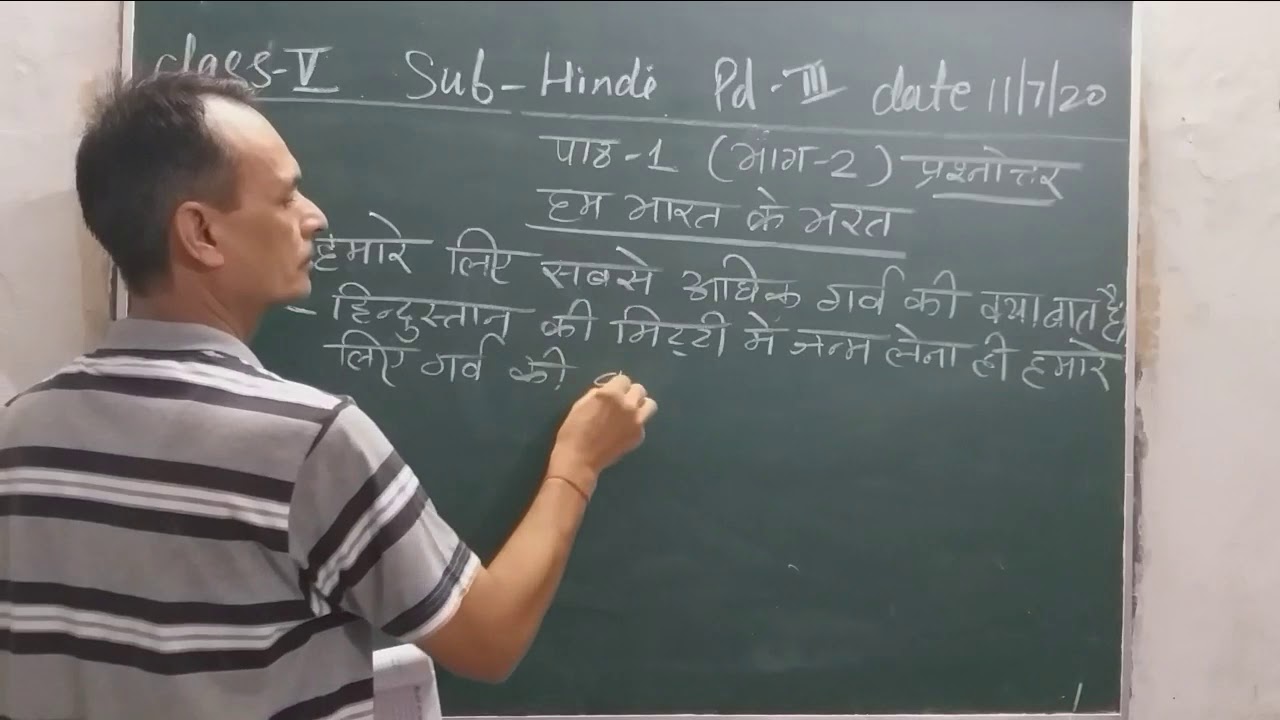 Class-V Sub-Hindi Pd-III date 11/7/20
पाठ-1 (भाग-2) प्रश्नोत्तर
हम भारत के भरत
हमारे लिए सबसे अधिक गर्व की क्या बात है।
- हिन्दुस्तान की मिट्टी मे जन्म लेना ही हमारे
लिए गर्व की